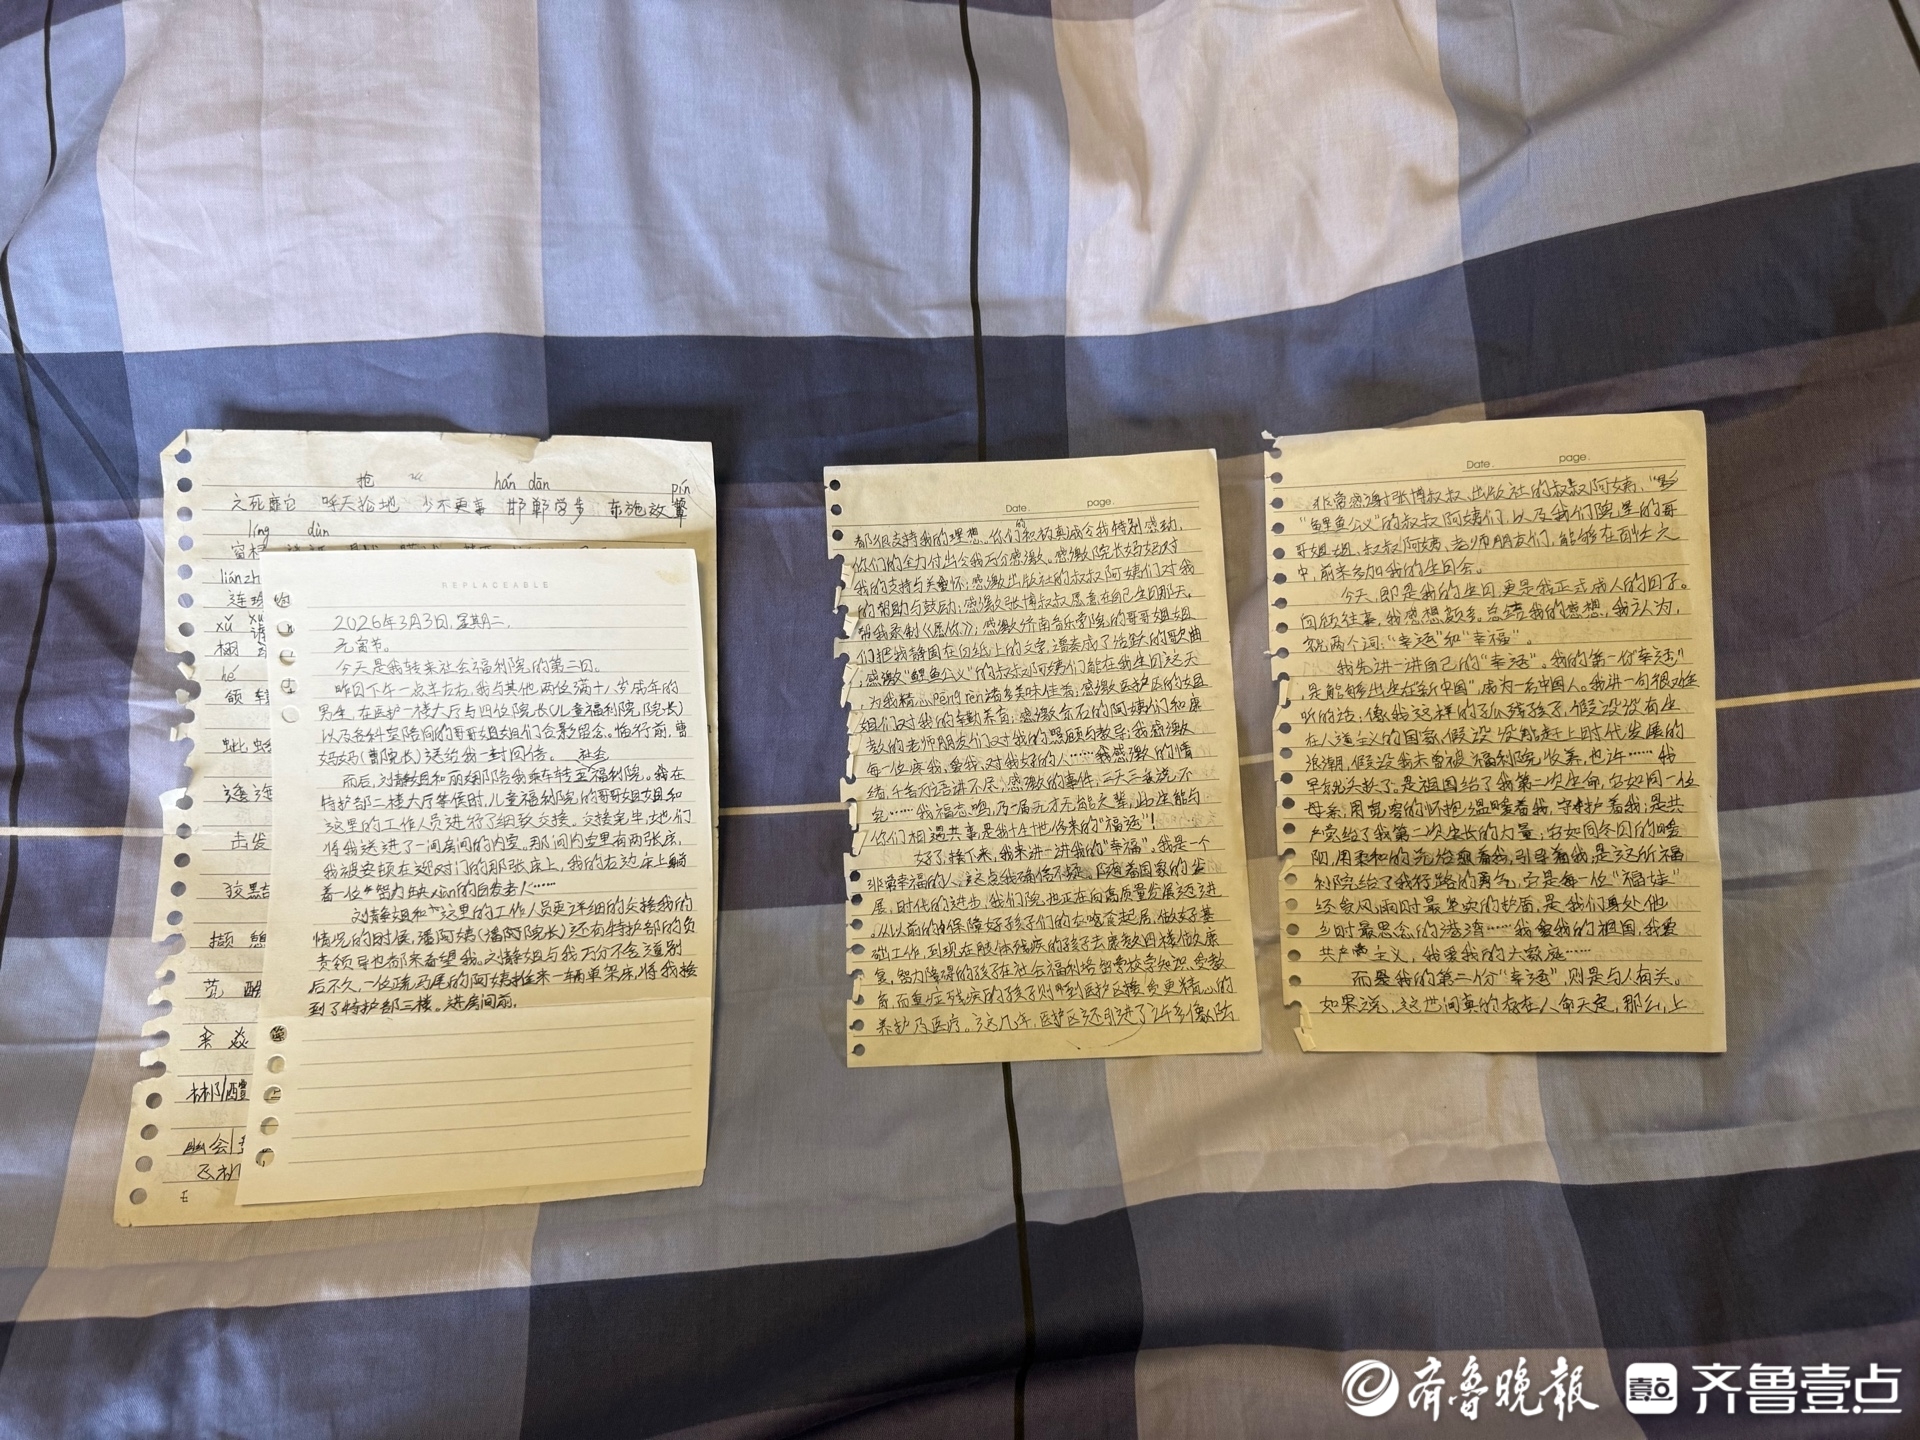 抢
hán dān
pín
之死靡它 呼天抢地 少不更事 邯郸学步 东施效颦
líng dùn
liánzh
连珠
xǔ xu
栩
hé
颌
逶迤
击发
狡黠
撷 憩
REPLACEABLE
2026年3月3日,星期二,
元宵节。
今天是我转来社会福利院的第二日。
昨日下午一点半左右,我与其他两位满十八岁成年的
男生,在医护一楼大厅与四位院长(儿童福利院院长)
以及各科室陪同的哥哥姐姐们合影留念。临行前,曹
妈妈(曹院长)送给我一封回信。 社会
而后,刘静姐和丽娜陪我乘车转至福利院。我在
特护部二楼大厅等候时,儿童福利院的哥哥姐姐和
这里的工作人员进行了细致交接。交接完毕,她们
将我送进了一间房间的内室。那间内室里有两张床,
我被安顿在迎对门的那张床上,我的右边床上躺
着一位"努力缺人的白发老人"……
刘静姐和这里的工作人员更详细的交接我的
情况的时候,潘阿姨(潘阿院长)还有特护部的负
责领导也都来看望我。刘静姐与我万分不舍道别
后不久,一位疏马尾的阿姨推来一辆单架床,将我接
到了特护部三楼。进房间前,
Date. page.
都很支持我的理想,你们的和极真诚令我特别感动,
你们的全力付出令我万分感激。感激院长妈妈对
我的支持与关怀;感激出版社的叔叔阿姨们对我
的帮助与鼓励;感激张博叔叔愿意在自己生日那天,
帮我录制《愿你》;感激济南音乐学院的哥哥姐姐
们把我静固在白纸上的文字,谱奏成了活跃的歌曲
;感激"鲤鱼公义"的叔叔阿姨们能在我生日这天
,为我精心pēng rèn诸多美味佳肴;感激医护区的姐
姐们对我的辛勤养育;感激奈石的阿姨们和康
教的老师朋友们对我的照顾与教导;我感激
每一位疼我、爱我、对我好的人……我感激的情
绪,千言万语讲不尽,感激的事件,三天三夜说不
完……我福杰鸣,乃一届无才无能之辈,此生能与
你们相遇共事是我十世修来的"福运"!
好了,接下来,我来讲一讲我的"幸福",我是一个
非常幸福的人,这点我确信不疑。随着国家的发
展,时代的进步,我们院,也正在向高质量发展迈进
。从以前的保障好孩子们的衣喰食起居,做好基
础工作,到现在肢体残疾的孩子去康教四楼做康
复,智力障碍的孩子在社会福利培智学校学知识、受教
育,而重症残疾的孩子则到医护区接受更精心的
养护及医疗。这几年,医护区还引进了许多像以陆
Date. page.
非常感谢张博叔叔、出版社的叔叔阿姨,"
"鲤鱼公义"的叔叔阿姨们,以及我们院里的哥
哥姐姐、叔叔阿姨、老师朋友们,能够在百忙之
中,前来参加我的生日会。
今天,即是我的生日,更是我正式成人的日子。
回顾往事,我感想颇多。总结我的感想,我认为,
就两个词:"幸运"和"幸福"。
我先讲一讲自己的"幸运"。我的第一份"幸运"
,是能够出生在新中国,成为一名中国人。我讲一句很难全
听的话,像我这样的孤残孩子,假设没有生
在人道主义的国家,假设没能赶上时代发展的
浪潮,假设我未曾被福利院收养,也许……我
早就夭折了。是祖国给了我第二次生命,它如同一位
母亲,用宽容的怀抱温暖着我,守护着我;是共
产党给了我第二次生长的力量,它如同冬日的暖
阳,用柔和的光治愈着我,引导着我;是这所福
利院给了我行路的勇气,它是每一位"福娃"
经受风雨时最坚实的护盾,是我们身处他
乡时最思念的港湾……我爱我的祖国,我爱
共产主义,我爱我的大家庭……
而是我的第二份"幸运",则是与人有关。
如果说,这世间真的存在人命天定,那么,上
齐鲁晚报 齐鲁壹点